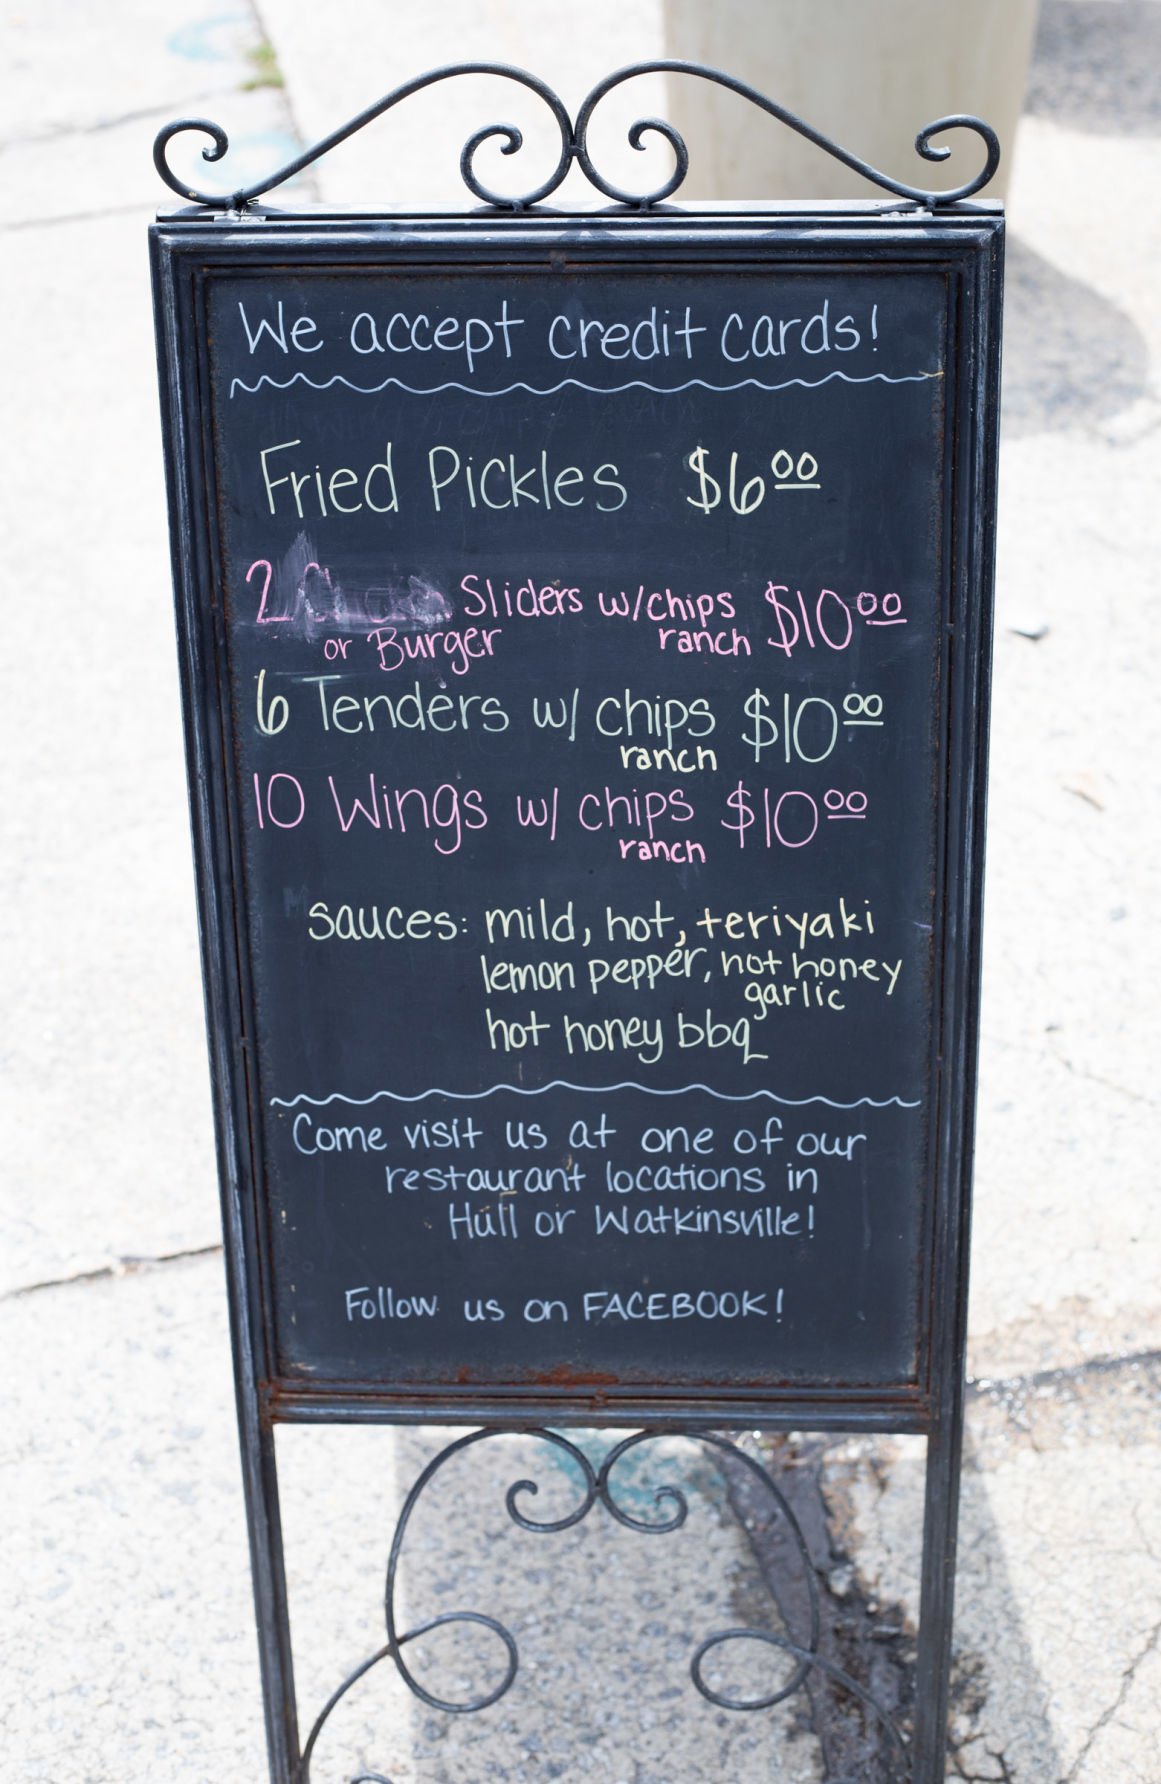 We accept credit cards!
Fried Pickles $6.00
2 Sliders w/chips $10.00
or Burger ranch
6 Tenders w/ chips $10.00
ranch
10 Wings w/ chips $10.00
ranch
sauces: mild, hot, teriyaki
lemon pepper, hot honey
garlic
hot honey bbq
Come visit us at one of our
restaurant locations in
Hull or Watkinsville!
Follow us on FACEBOOK!